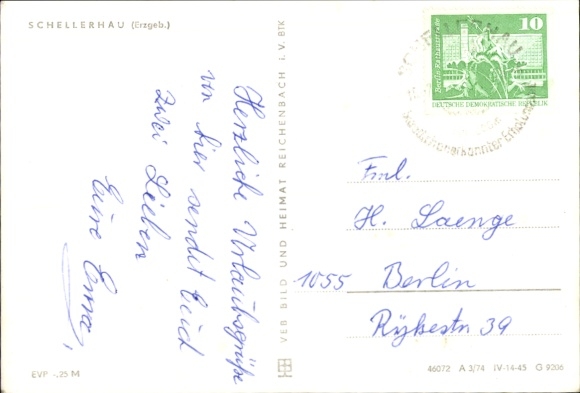 SCHELLERHAU (Erzgeb.)
Herzliche Urlaubsgrüße
von hier sendet Euch
zwei Lieben
Eure Erna,
VEB BILD UND HEIMAT REICHENBACH i. V. BfK
10
Berlin-Rathausstraße
DEUTSCHE DEMOKRATISCHE REPUBLIK
Fml.
H. Laenge
1055 Berlin
Rykestr 39
EVP -,25 M
46072 A 3/74 IV-14-45 G 9206